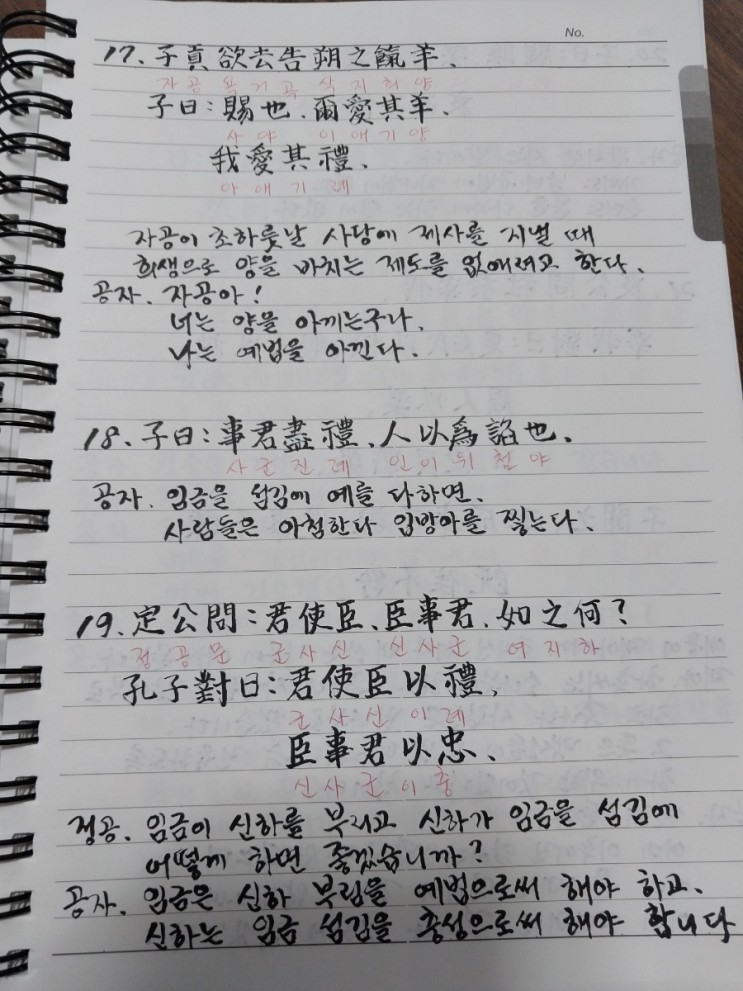 No.
17. 子貢欲去告朔之餼羊.
자공 욕거곡 삭지희양
子曰: 賜也. 爾愛其羊.
사야 이애기양
我愛其禮.
아애기례
자공이 초하룻날 사당에 제사를 지낼 때
희생으로 양을 바치는 제도를 없애려고 한다.
공자. 자공아!
너는 양을 아끼는구나.
나는 예법을 아낀다.
18. 子曰: 事君盡禮. 人以爲諂也.
사군진례 인이위첨야
공자. 임금을 섬김에 예를 다하면.
사람들은 아첨한다 입방아를 찧는다.
19. 定公問: 君使臣. 臣事君. 如之何?
정공문 군사신 신사군 여지하
孔子對曰: 君使臣以禮.
군사신이례
臣事君以忠.
신사군이충
정공. 임금이 신하를 부리고 신하가 임금을 섬김에
어떻게 하면 좋겠습니까?
공자. 임금은 신하 부림을 예법으로써 해야 하고.
신하는 임금 섬김을 충성으로써 해야 합니다